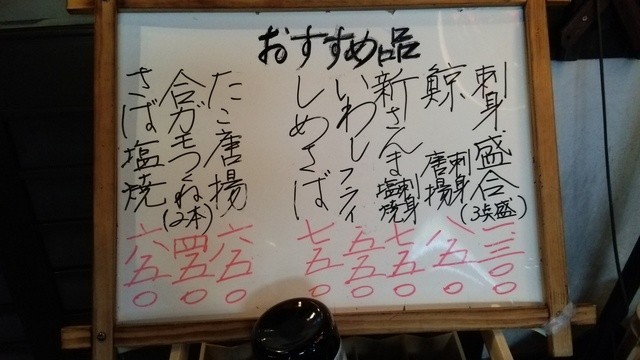 おすすめ品
刺身盛合(3点盛) 一、三〇〇
鯨 刺身 唐揚 八五〇
新さんま 刺身 塩焼 七五〇
いわしフライ 五五〇
しめさば 七五〇
たこ唐揚 六五〇
合ガモつくね(2本) 四五〇
さば塩焼 六五〇